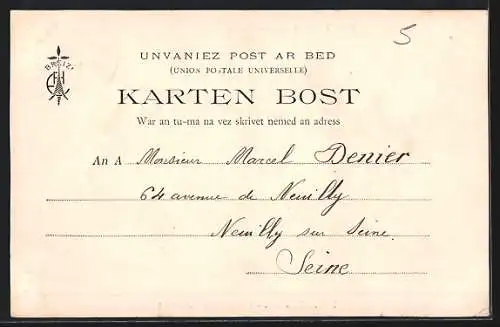 5
BREIZ
UNVANIEZ POST AR BED
(UNION POSTALE UNIVERSELLE)
KARTEN BOST
War an tu-ma na vez skrivet nemed an adress
An A Monsieur Marcel Denier
64 avenue de Neuilly
Neuilly sur Seine.
Seine